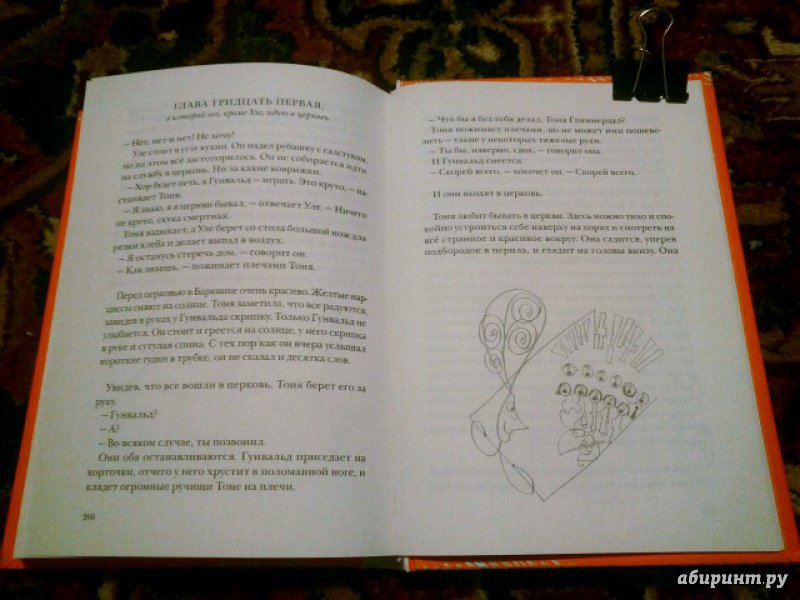 ГЛАВА ТРИДЦАТЬ ПЕРВАЯ,
в которой все, кроме Уле, идут в церковь
— Нет, нет и нет! Не хочу!
Уле стоит в углу кухни. Он надел рубашку с галстуком,
но на этом всё застопорилось. Он не собирается идти
на службу в церковь. Ни за какие коврижки.
— Хор будет петь, а Гунвальд — играть. Это круто, — на-
стаивает Тоня.
— Я знаю, я в церкви бывал, — отвечает Уле. — Ничего
не круто, скука смертная.
Тоня вздыхает, а Уле берет со стола большой нож для
резки хлеба и делает выпад в воздух.
— Я останусь стеречь дом, — говорит он.
— Как знаешь, — пожимает плечами Тоня.
Перед церковью в Барквике очень красиво. Желтые нар-
циссы сияют на солнце. Тоня заметила, что все радуются,
завидев в руках у Гунвальда скрипку. Только Гунвальд не
улыбается. Он стоит и греется на солнце, у него скрипка
в руке и сутулая спина. С тех пор как он вчера услышал
короткие гудки в трубке, он не сказал и десятка слов.
Увидев, что все вошли в церковь, Тоня берет его за
руку.
— Гунвальд?
— А?
— Во всяком случае, ты позвонил.
Они оба останавливаются. Гунвальд приседает на
корточки, отчего у него хрустит в поломанной ноге, и
кладет огромные ручищи Тоне на плечи.
266
— Что бы я без тебя делал, Тоня Глиммердал?
Тоня пожимает плечами, но не может ими пошеве-
лить — такие у некоторых тяжелые руки.
— Ты бы, наверно, сдох, — говорит она.
И Гунвальд смеется.
— Скорей всего, — хохочет он. — Скорей всего.
И они входят в церковь.
Тоня любит бывать в церкви. Здесь можно тихо и спо-
койно устроиться себе наверху на хорах и смотреть на
всё странное и красивое вокруг. Она садится, уперев
подбородок в перила, и глядит на головы внизу. Она
абиринт.ру